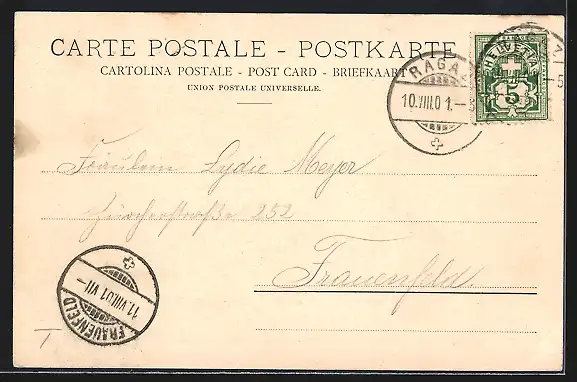 CARTE POSTALE - POSTKARTE
CARTOLINA POSTALE - POST CARD - BRIEFKAART
UNION POSTALE UNIVERSELLE.
RAGAZ
10.VIII.01.-5
HELVETIA
5
Fräulein Lydie Meyer
Zürcherstraße 252
Frauenfeld.
11.VIII.01 VII-
FRAUENFELD